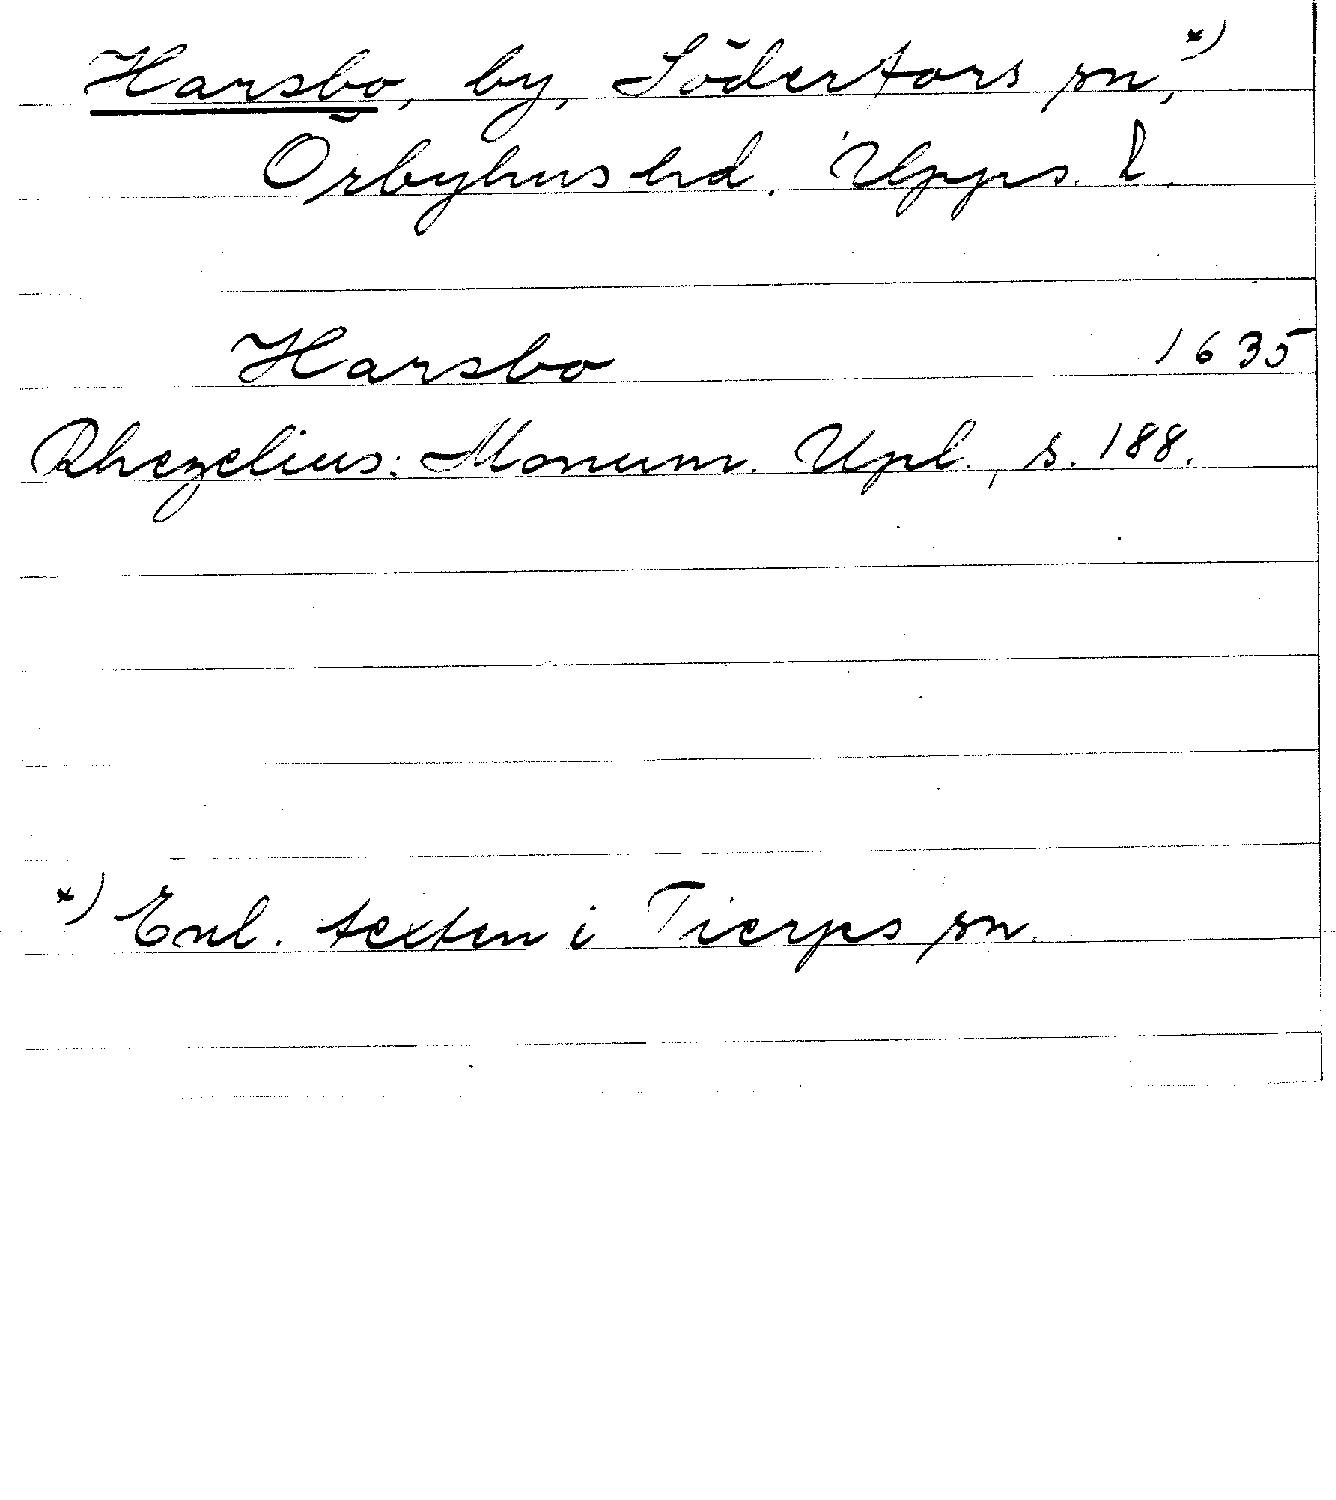 Harsbo, by, Södertors sn,*)
Örbyhus hd. Upps. l.
Harsbo 1635
Rhezelius: Monum. Upl., s. 188.
*) Enl. texten i Tierps sn.